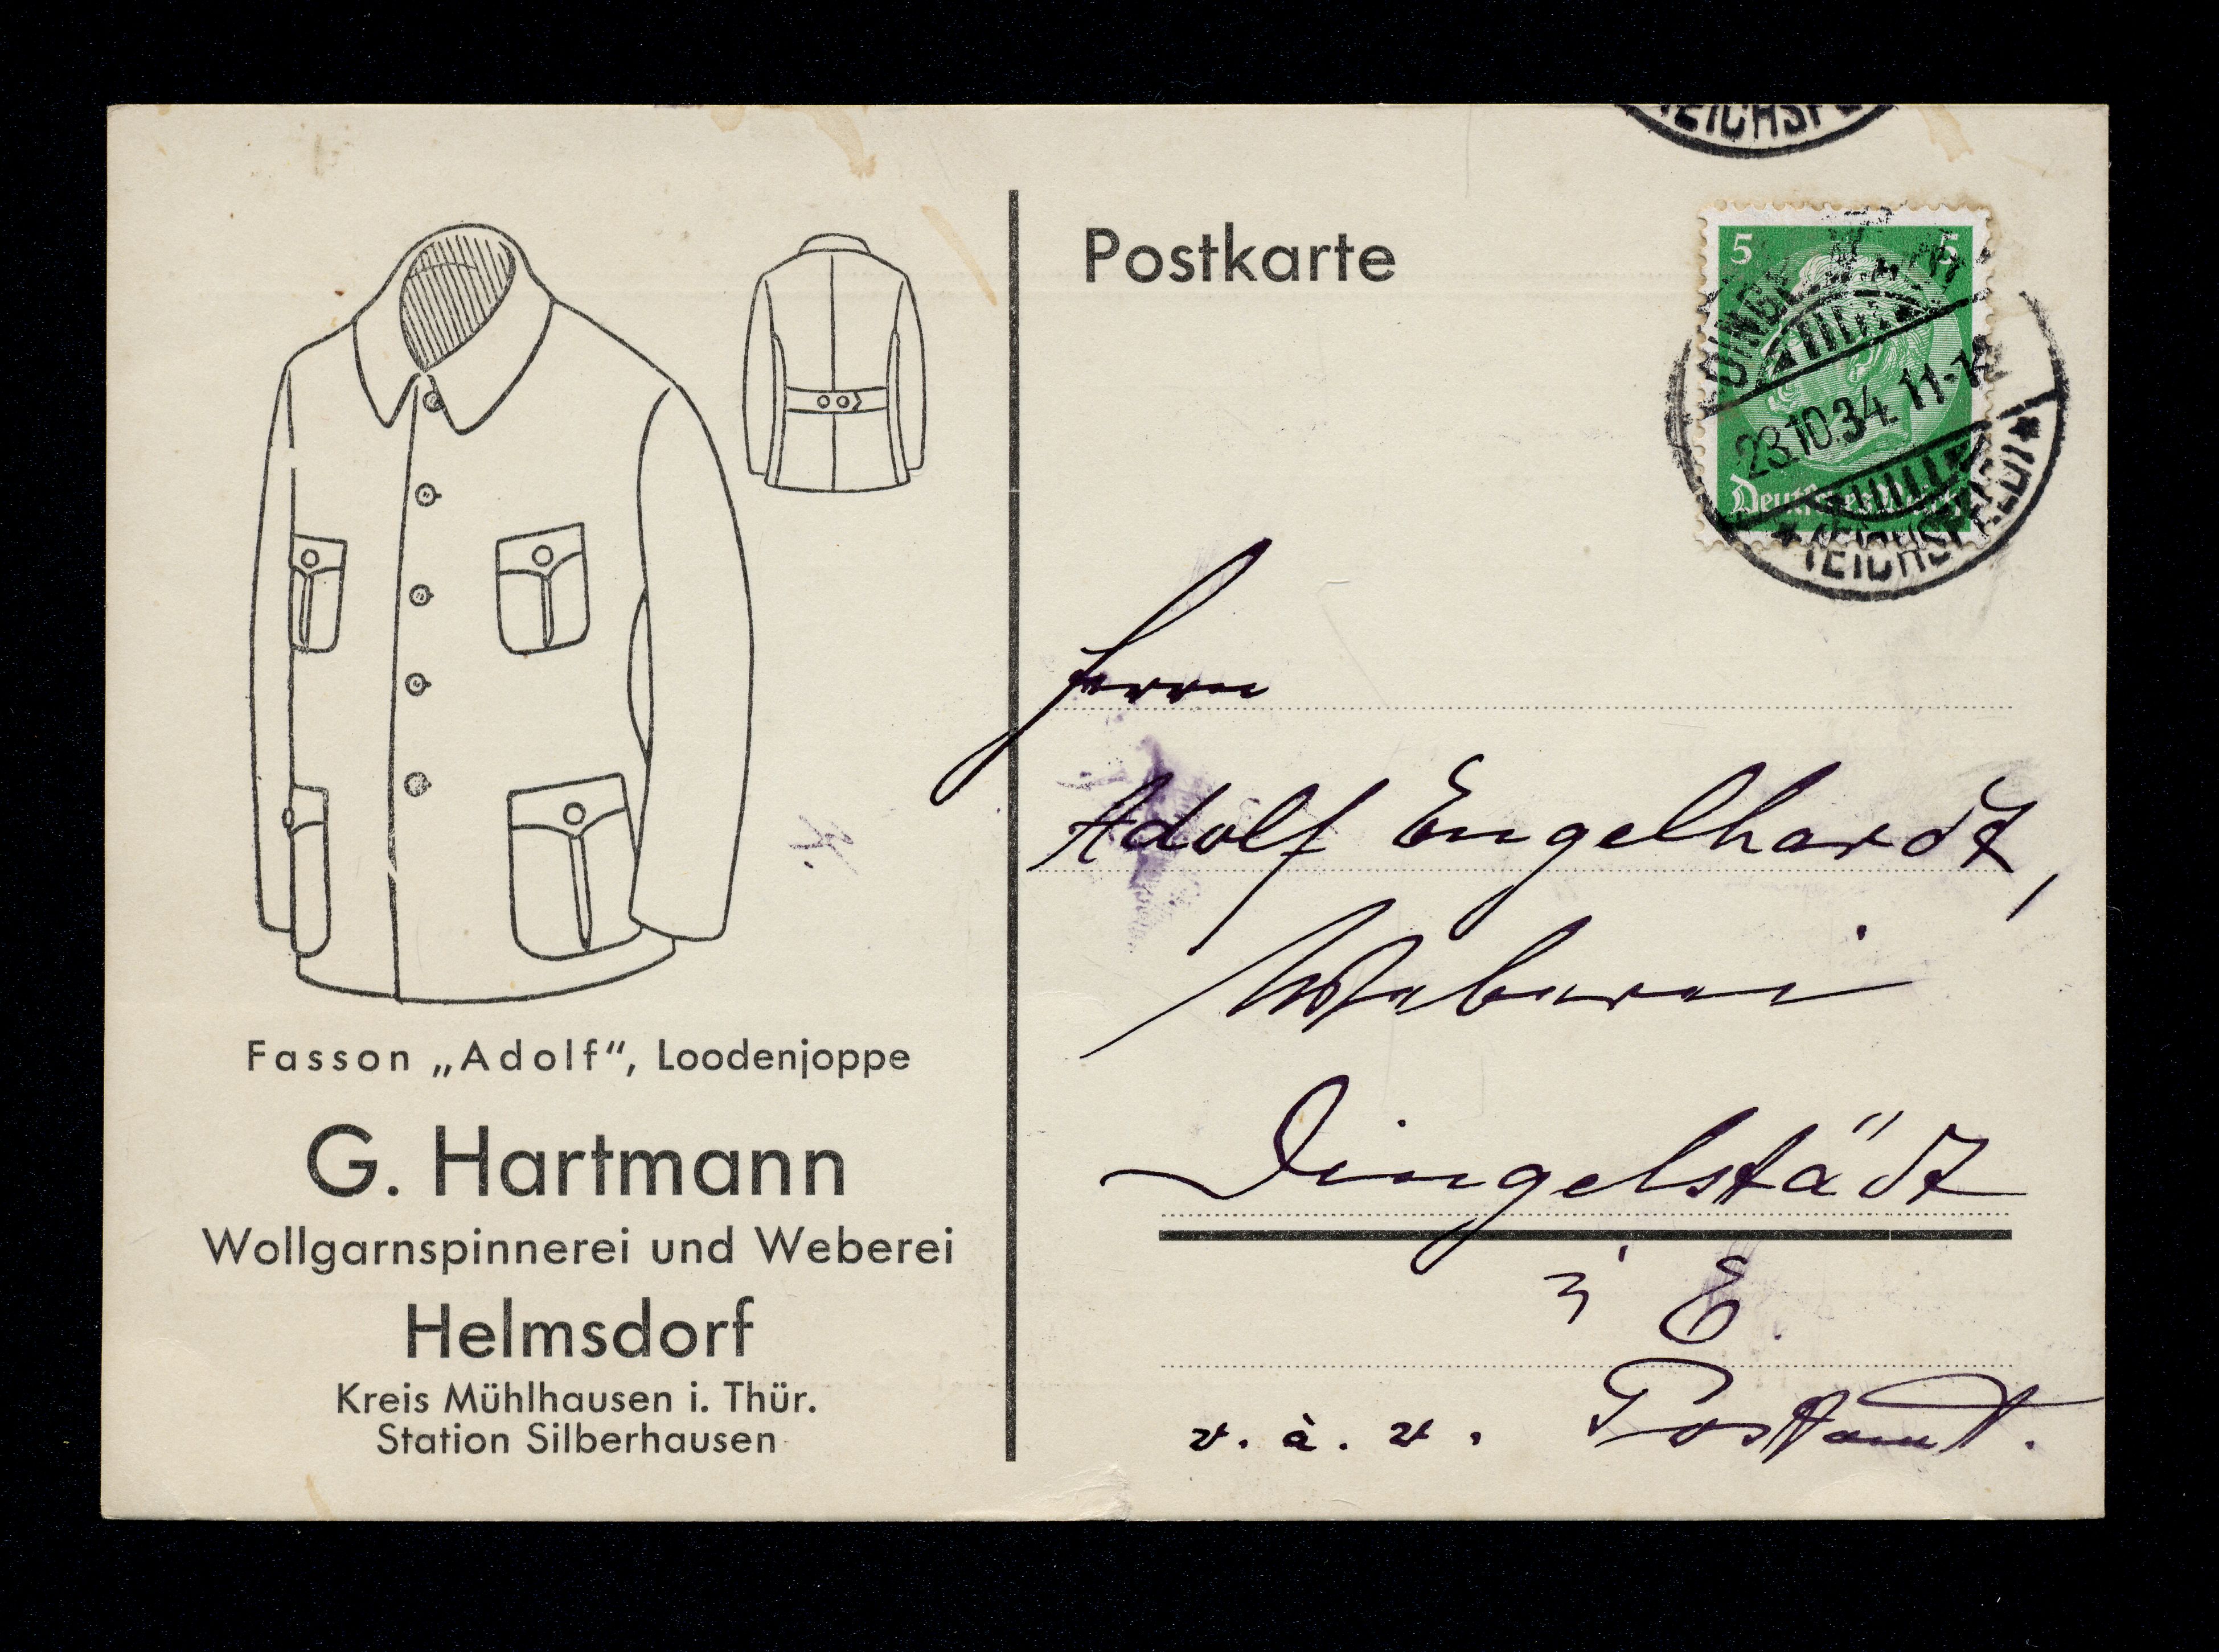 Fasson „Adolf“, Loodenjoppe
G. Hartmann
Wollgarnspinnerei und Weberei
Helmsdorf
Kreis Mühlhausen i. Thür.
Station Silberhausen
Postkarte
5 5
23.10.34. 11-12
Deutsches Reich
(EICHSFELD)
Herrn
Adolf Engelhardt,
Weberei
Dingelstädt
i E.
v. à. v. Postamt.